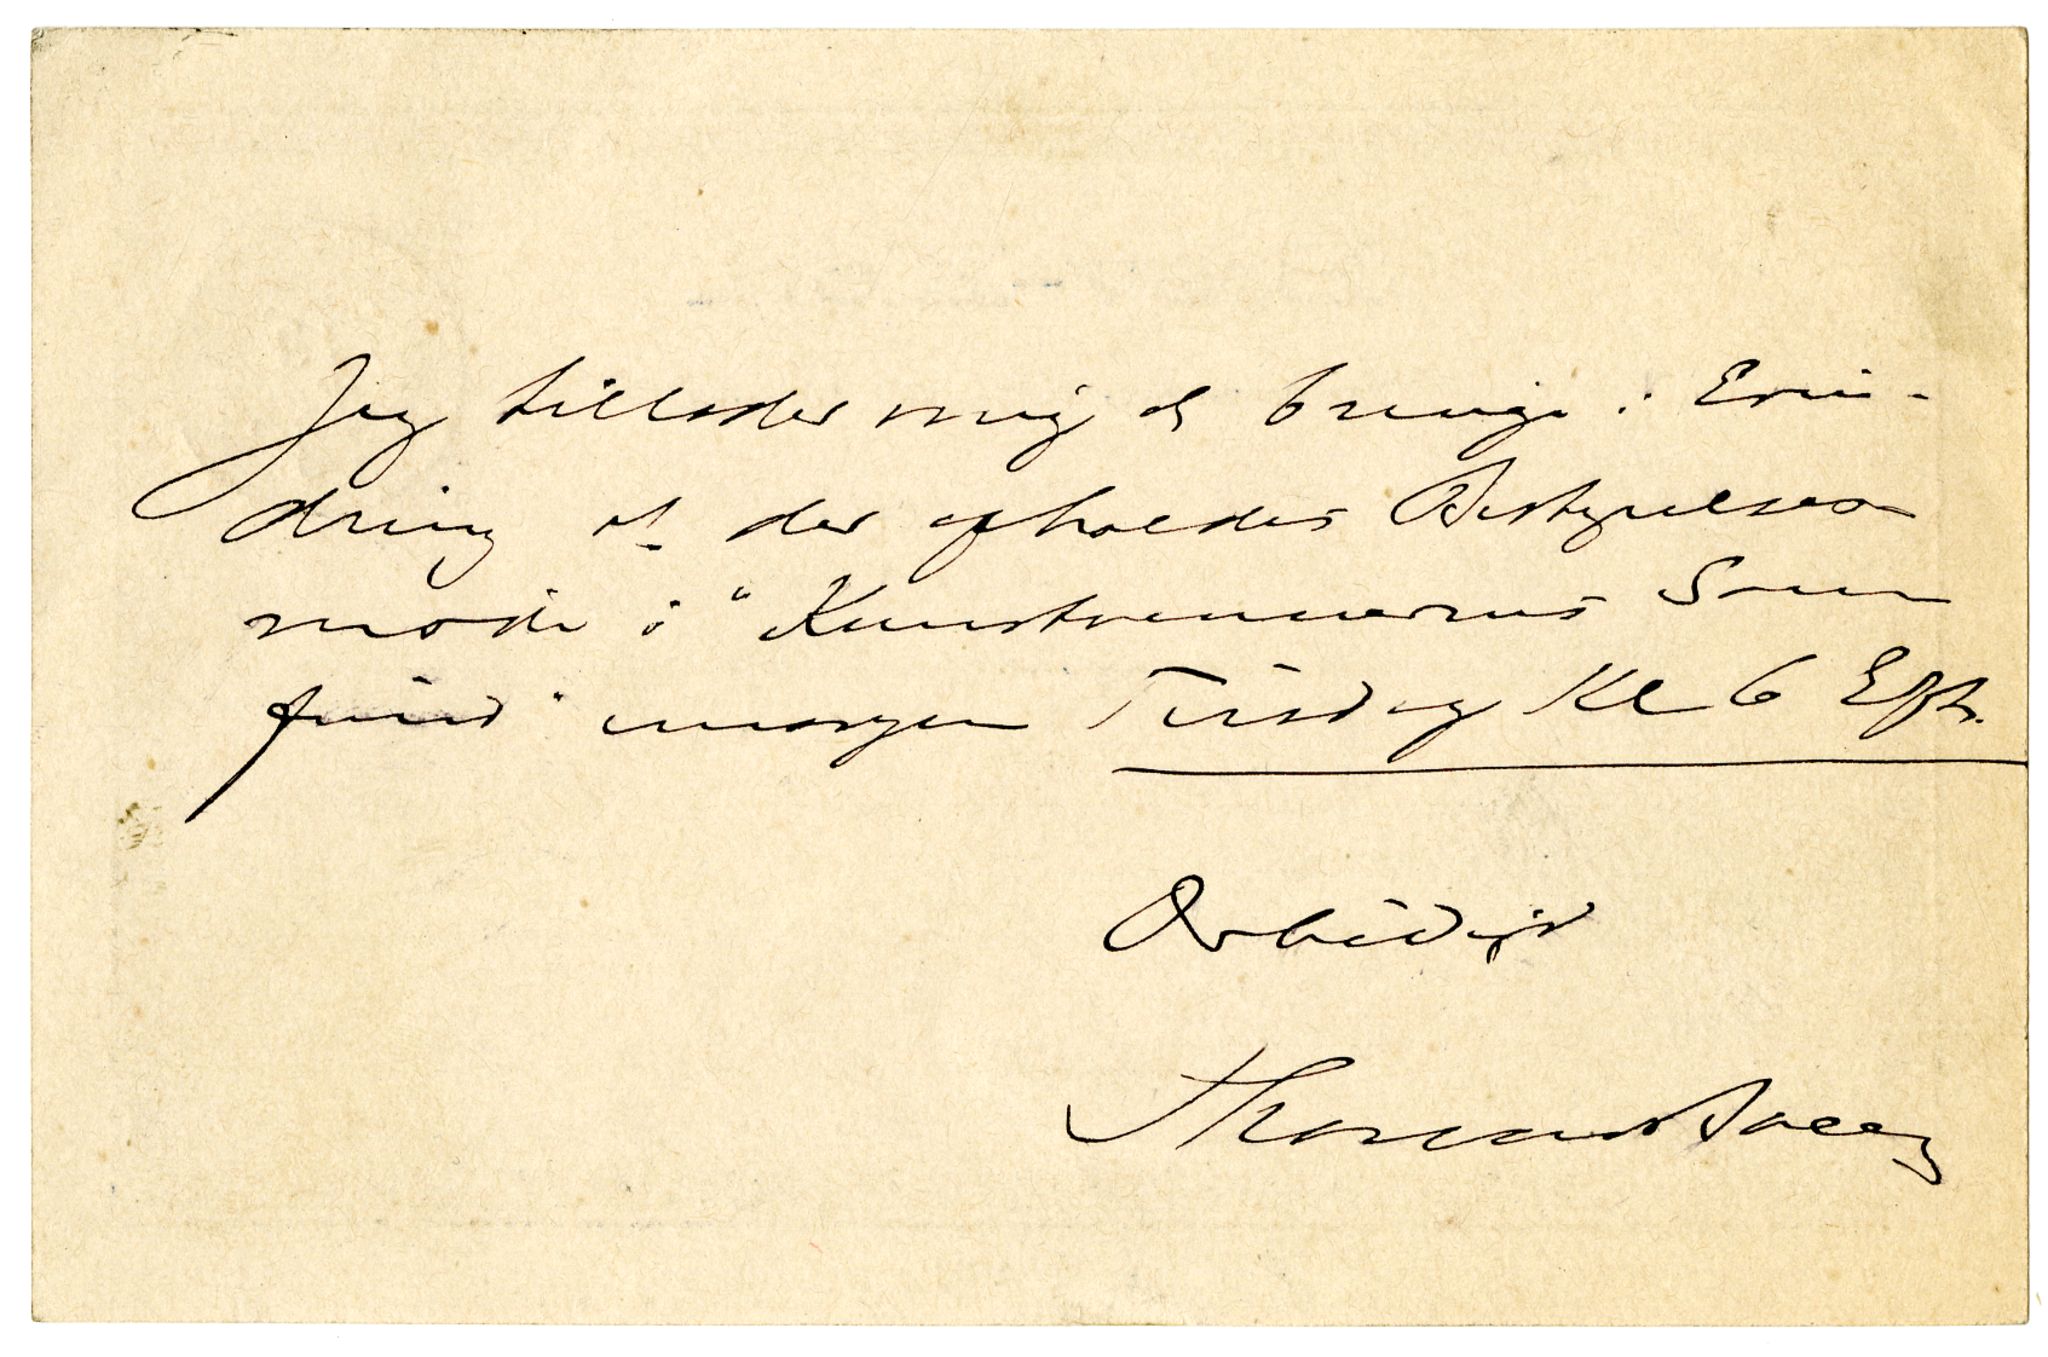 Jeg tillader mig at bringe i Erin-
dring at der afholdes Bestyrelses
møde i "Kunstvennernes Sam
fund" imorgen Tirsdag Kl 6 Eft.
Ærbødigst